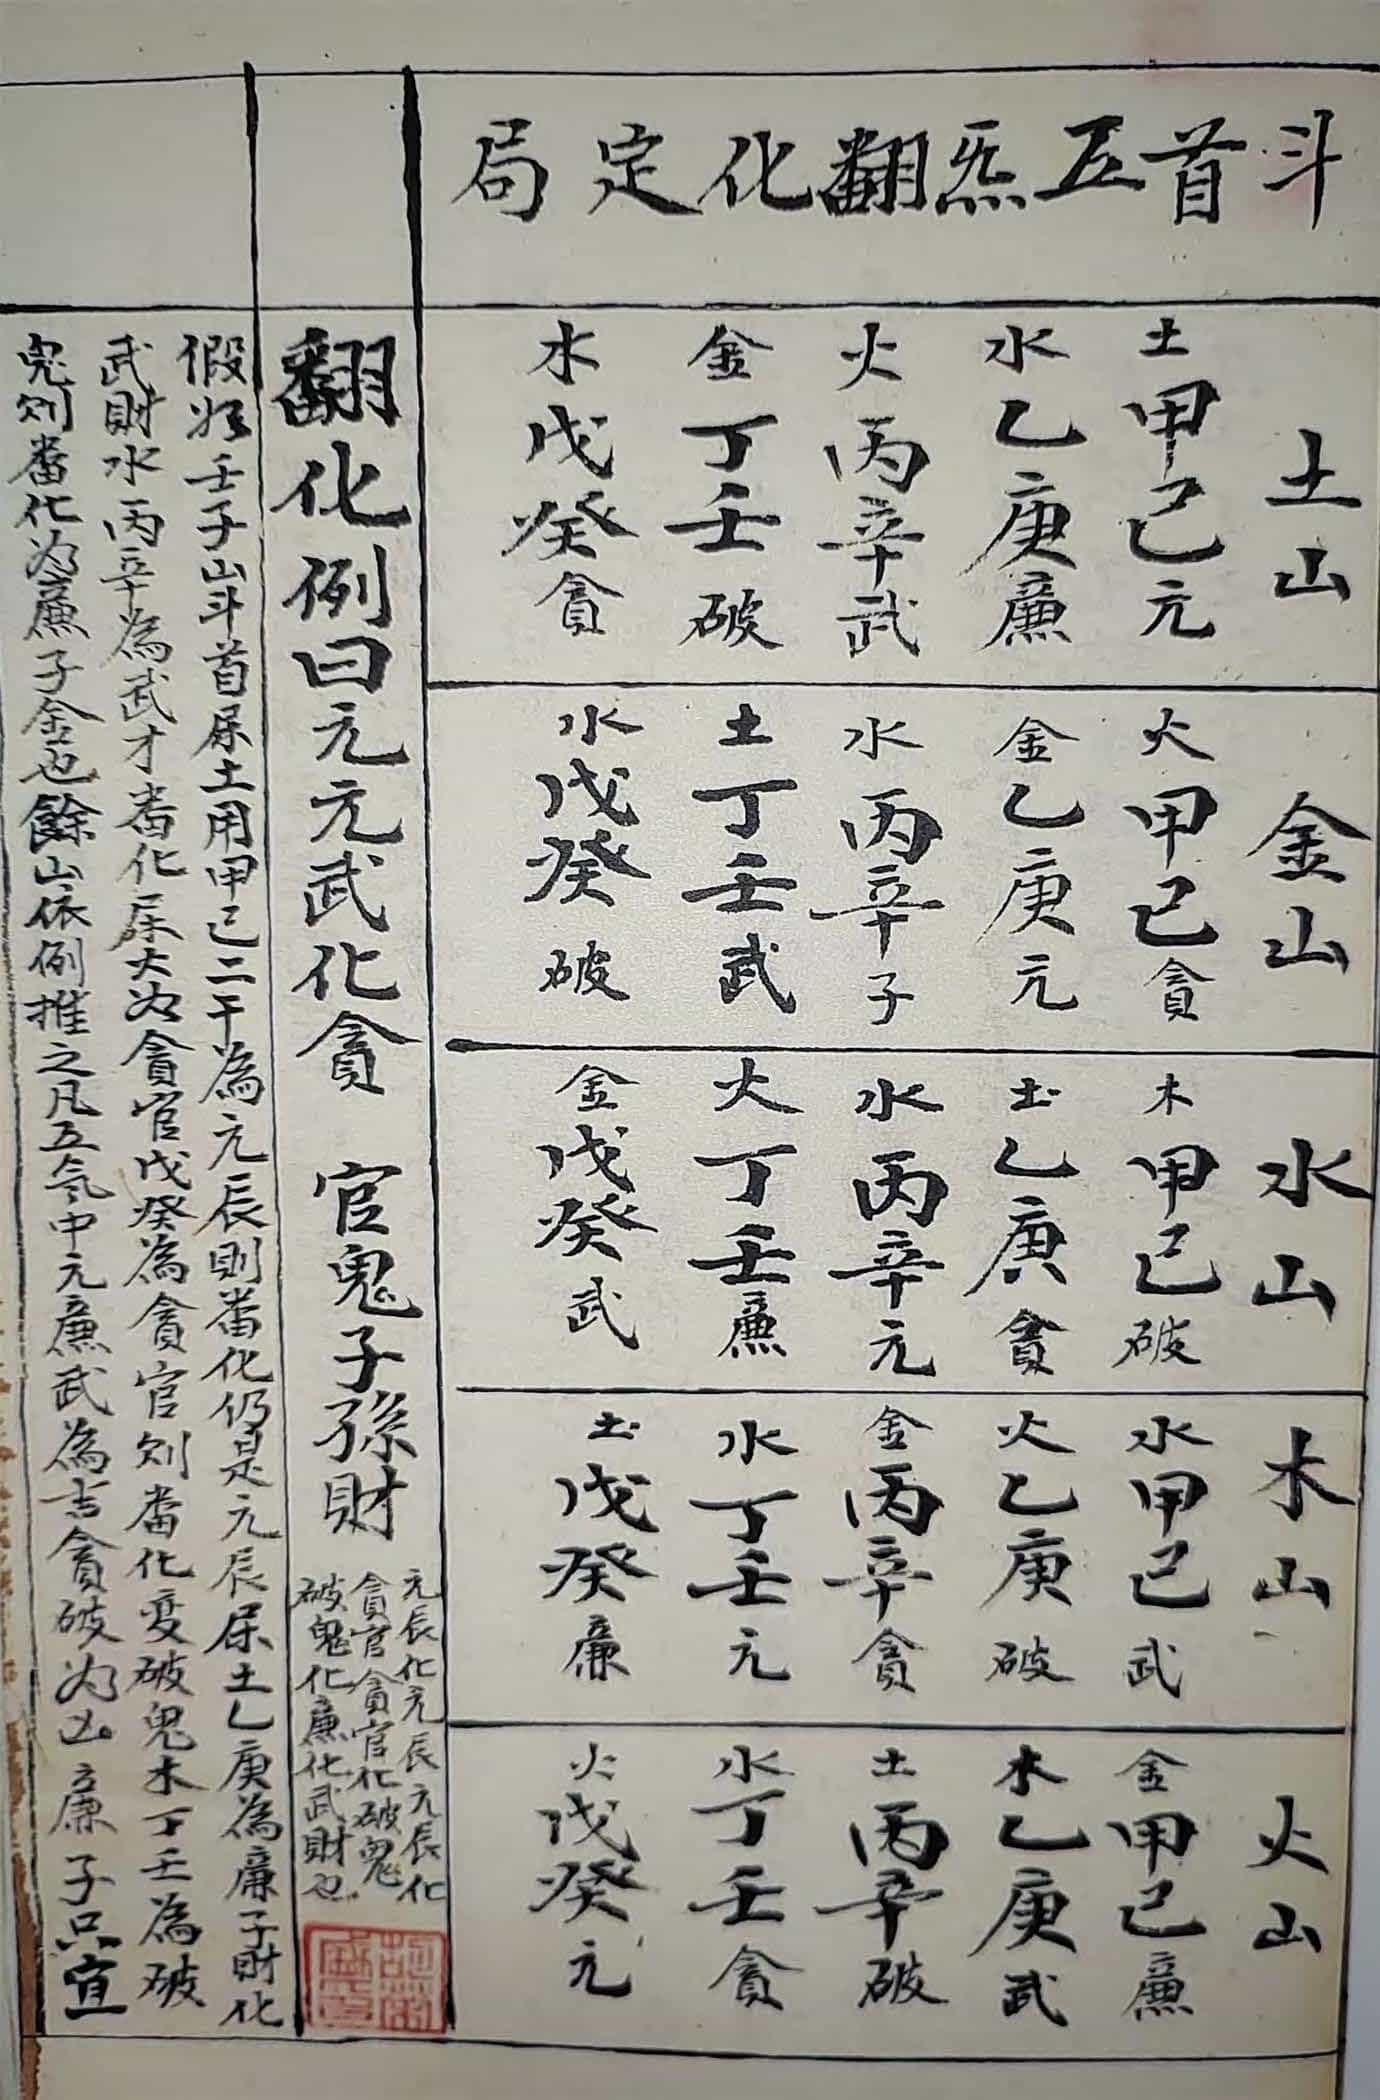 斗首五炁翻化定局
土山
土甲己元
水乙庚廉
火丙辛武
金丁壬破
水戊癸貪
金山
火甲己貪
金乙庚元
水丙辛子
土丁壬武
水戊癸破
水山
木甲己破
土乙庚貪
水丙辛元
火丁壬廉
金戊癸武
木山
水甲己武
火乙庚破
金丙辛貪
水丁壬元
土戊癸廉
火山
金甲己廉
木乙庚武
土丙辛破
水丁壬貪
火戊癸元
翻化例曰元元武化貪 官鬼子孫財
元辰化元辰元辰化
貪官貪官化破鬼
破鬼化廉化武財也
假如壬子山斗首屎土用甲己二干為元辰則畨化仍是元辰屎土乙庚為廉子財化
武財水丙辛為武才畨化屎火为貪官戊癸為貪官则畨化变破鬼木丁壬為破
鬼则畨化为廉子金也餘山依例推之凡五氕中元廉武為吉貪破为凶廉子只宜